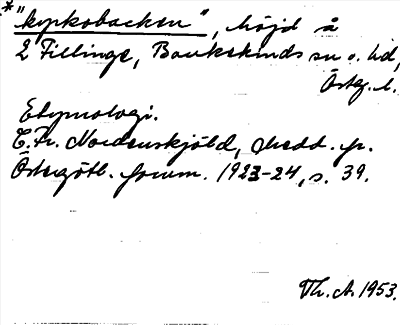 *"kyrkobacken", höjd å
L Fillinge, Bankekinds sn o. hd,
Östg. l.
Etymologi.
C. Fr. Nordenskjöld, Medd. fr.
Östergötl. fornm. 1923-24, s. 39.
Th. A. 1953.